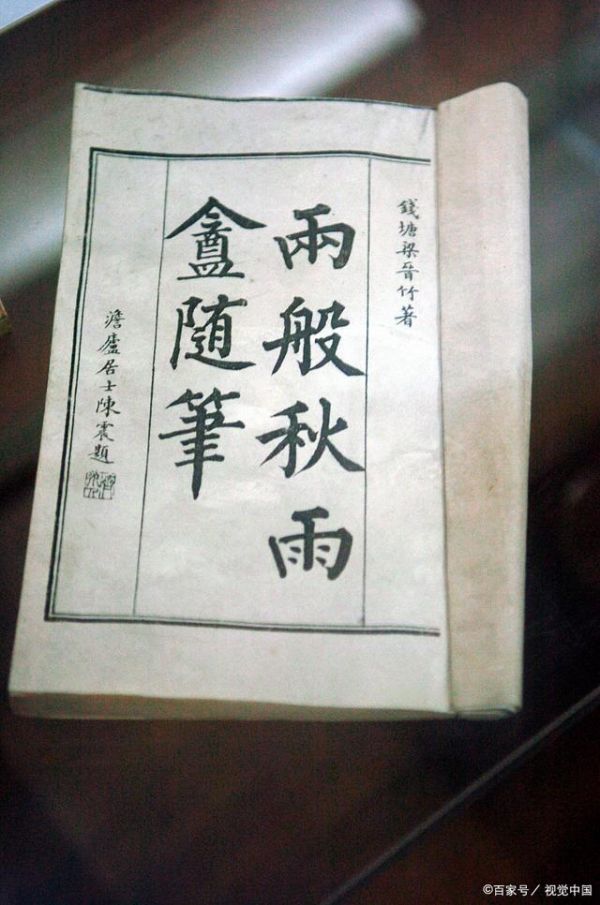 錢塘梁晉竹著
兩般秋雨
盦随筆
澹廬居士陳震題
©百家号／视觉中国